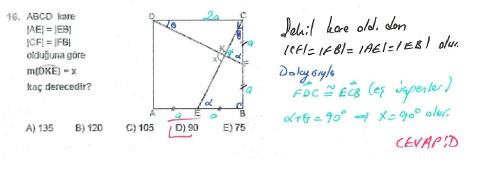 16. ABCD kare
|AE| = |EB|
|CF| = |FB|
olduğuna göre
m(DKE) = x
kaç derecedir?
D
θ
2a
C
θ
a
K
x
α
F
a
α
A
a
E
a
B
A) 135 B) 120 C) 105 D) 90 E) 75
Şekil kare old. dan
|CF| = |FB| = |AE| = |EB| olur.
Dolayısıyla
FDC ≅ ECB (eş üçgenler)
α+θ = 90° ⇒ x = 90° olur.
CEVAP: D